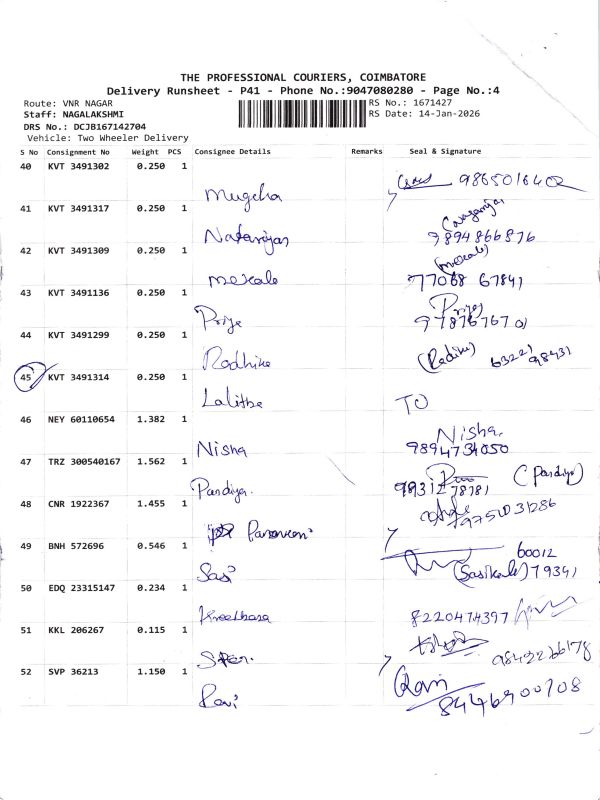 THE PROFESSIONAL COURIERS, COIMBATORE
Delivery Runsheet - P41 - Phone No.:9047080280 - Page No.:4
Route: VNR NAGAR
Staff: NAGALAKSHMI
DRS No.: DCJB167142704
Vehicle: Two Wheeler Delivery
RS No.: 1671427
RS Date: 14-Jan-2026
S No Consignment No Weight PCS Consignee Details Remarks Seal & Signature
40 KVT 3491302 0.250 1
Mugesha
41 KVT 3491317 0.250 1
Natarajan 9894866876
42 KVT 3491309 0.250 1
mekala (mekala) 77068 67841
43 KVT 3491136 0.250 1
Priya Priya 9787676701
44 KVT 3491299 0.250 1
Radhika (Radika) 63221 98431
45 KVT 3491314 0.250 1
Lalitha TO
46 NEY 60110654 1.382 1
Nisha Nisha. 9894734050
47 TRZ 300540167 1.562 1
Pandiya. (Pandiya)
48 CNR 1922367 1.455 1
Paraveen 9751031286
49 BNH 572696 0.546 1
Sasi (Sasikala) 60012 79341
50 EDQ 23315147 0.234 1
8220474397
51 KKL 206267 0.115 1
52 SVP 36213 1.150 1
Ravi Ravi 8446900708